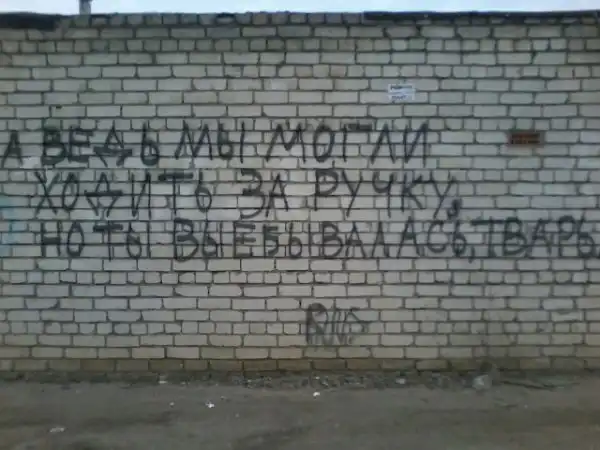 А ВЕДЬ МЫ МОГЛИ
ХОДИТЬ ЗА РУЧКУ,
НО ТЫ ВЫЕБЫВАЛАСЬ, ТВАРЬ.